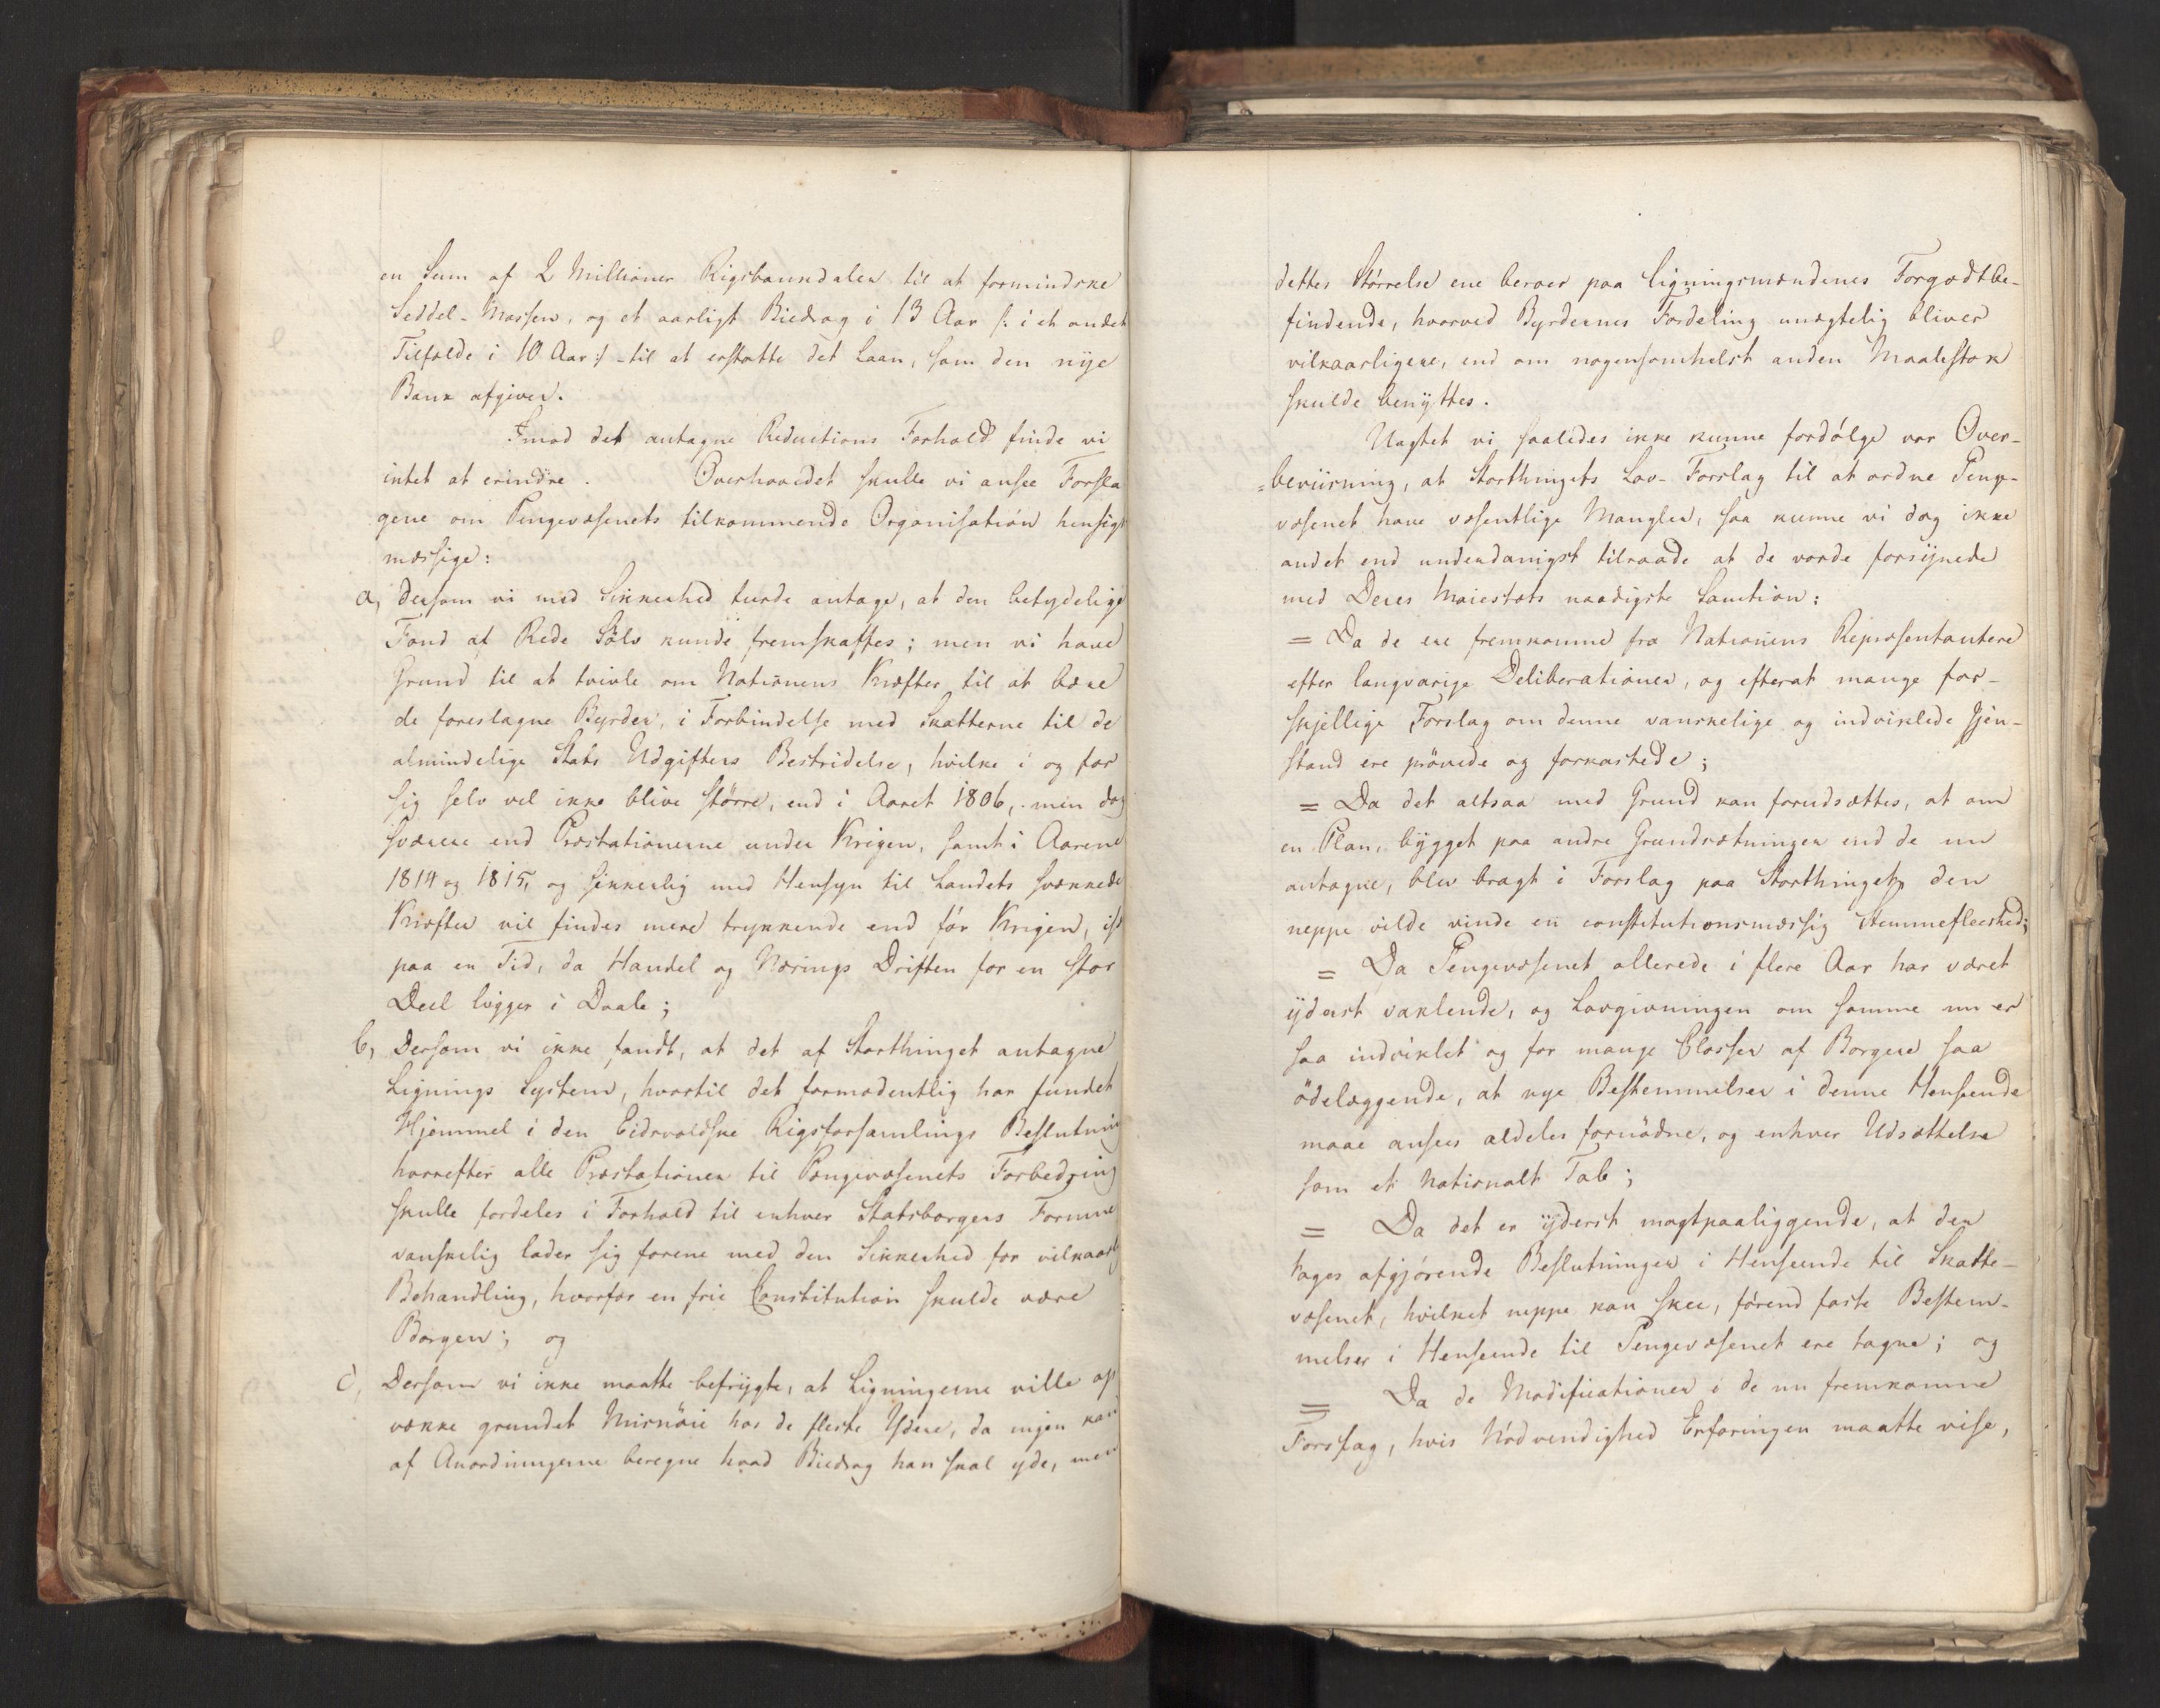 en Sum af 2 Millioner Rigsbankdaler til at formindske
Seddel-Massen, og et aarligt Biedrag i 13 Aar /: i et andet
Tilfælde i 10 Aar :/ til at erstatte det Laan, som den nye
Bank afgiver.
Imod det antagne Reductions Forhold finde vi
intet at erindre. Overhovedet skulle vi ansee Forsla
gene om Pengevæsenets tilkommende Organisation hensigt
mæssige:
a, dersom vi med Sikkerhed turde antage, at den betydelige
Fond af Rede Sølv kunde fremskaffes; men vi have
Grund til at tvivle om Nationens Kræfter til at bære
de foreslagne Byrder, i Forbindelse med Skatterne til de
almindelige Stats Udgifters Bestridelse, hvilke i og for
sig selv vel ikke blive større, end i Aaret 1806, men dog
sværere end Præstationerne under Krigen, samt i Aarene
1814 og 1815, og sikkerlig med Hensyn til Landets svækkede
Kræfter vil findes mere trykkende end før Krigen, ist
paa en Tid, da Handel og Nærings Driften for en stor
Deel ligger i Dvale;
b, Dersom vi ikke fandt, at det af Storthinget antagne
Lignings System, hvortil det formodentlig har fundet
Hjemmel i den Eidsvoldske Rigsforsamlings Beslutning
hvorefter alle Præstationer til Pengevæsenets Forbedring
skulle fordeles i Forhold til enhver Statsborgers Formue
vanskelig lader sig forene med den Sikkerhed for vilkaarlig
Behandling, hvorfor en frie Constitution skulde være
Borgen; og
c, Dersom vi ikke maatte befrygte, at Ligningerne ville op
vække grundet Misnøie hos de fleste Ydere, da ingen kan
af Anordningerne beregne hvad Biedrag han skal yde, men
dettes Størrelse ene beroer paa Ligningsmændenes Forgodtbe-
findende, hvorved Byrdernes Fordeling unægtelig bliver
vilkaarligere, end om nogensomhelst anden Maalestok
skulde benyttes.
Uagtet vi saaledes ikke kunne fordølge vor Over-
=beviisning, at Storthingets Lov-Forslag til at ordne Penge-
væsenet have væsentlige Mangler, saa kunne vi dog ikke
andet end underdanigst tilraade at de vorde forsynede
med Deres Maiestæts naadigste Sanction:
= Da de ere fremkomne fra Nationens Repræsentantere
efter langvarige Deliberationer, og efterat mange for-
skjellige Forslag om denne vanskelige og indviklede Gjen-
stand ere prøvede og forkastede;
= Da det altsaa med Grund kan forudsættes, at om
en Plan, bygget paa andre Grundsætninger end de nu
antagne, blev bragt i Forslag paa Storthinget, den
neppe vilde vinde en constitutionsmæssig Stemmefleerhed;
= Da Pengevæsenet allerede i flere Aar har været
yderst vaklende, og Lovgivningen om samme nu er
saa indviklet og for mange Classer af Borgere saa
ødelæggende, at nye Bestemmelser i denne Henseende
maae ansees aldeles fornødne, og enhver Udsættelse
som et Nationalt Tab;
= Da det er yderst magtpaaliggende, at der
tages afgjørende Beslutninger i Henseende til Skatte-
væsenet, hvilket neppe kan skee, førend faste Bestem-
melser i Henseende til Pengevæsenet ere tagne; og
= Da de Modificationer i de nu fremkomne
Forslag, hvis Nødvendighed Erfaringen maatte vise,